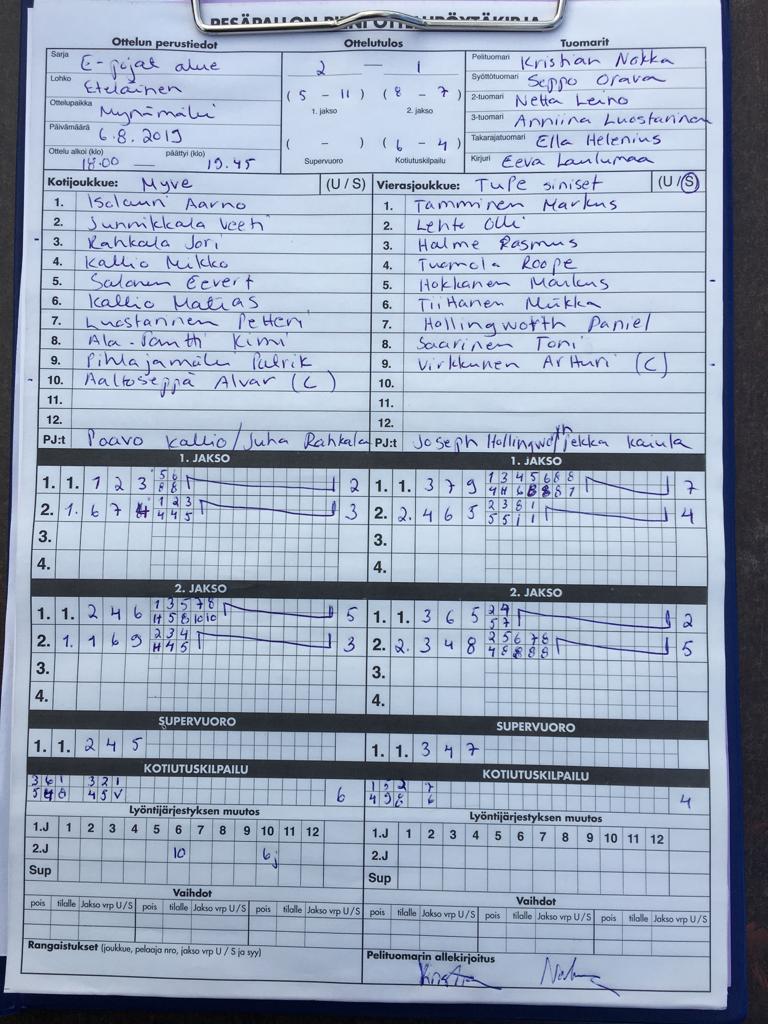 PESÄPALLON PIENI OTTELUPÖYTÄKIRJA
Ottelun perustiedot
Sarja E-pojat alue
Lohko Eteläinen
Ottelupaikka Mynämäki
Päivämäärä 6.8.2019
Ottelu alkoi (klo) päättyi (klo)
18.00 — 19.45
Ottelutulos
2 — 1
(5 - 11) (8 - 7)
1. jakso 2. jakso
( - ) (6 - 4)
Supervuoro Kotiutuskilpailu
Tuomarit
Pelituomari Kristian Nokka
Syöttötuomari Seppo Orava
2-tuomari Netta Leino
3-tuomari Anniina Luostarinen
Takarajatuomari Ella Helenius
Kirjuri Eeva Laulumaa
Kotijoukkue: Myve (U / S)
1. Isolauri Aarno
2. Junnikkala Veeti
3. Rahkala Jori
4. Kallio Mikko
5. Salonen Eevert
6. Kallio Matias
7. Luostarinen Petteri
8. Ala-Pantti Kimi
9. Pihlajamäki Patrik
10. Aaltoseppä Alvar (C)
11.
12.
PJ:t Paavo Kallio / Juha Rahkala
Vierasjoukkue: TuPe siniset (U / S)
1. Tamminen Markus
2. Lehto Olli
3. Halme Rasmus
4. Tuomola Roope
5. Hokkanen Markus
6. Tiihanen Miikka
7. Hollingworth Daniel
8. Saarinen Toni
9. Virkkunen Artturi (C)
10.
11.
12.
PJ:t Joseph Hollingworth Jekka Kaiula
1. JAKSO
1. 1. 1 2 3 5 6 2
8 8
2. 1. 6 7 4 1 2 3 3
4 4 5
3.
4.
1. JAKSO
1. 1. 3 7 9 1 3 4 5 6 8 8 7
2. 2. 4 6 5 2 3 8 1 4
5 5 1 1
3.
4.
2. JAKSO
1. 1. 2 4 6 1 3 5 7 8 5
4 5 8 10 10
2. 1. 1 6 9 2 3 4 3
4 4 5
3.
4.
2. JAKSO
1. 1. 3 6 5 2 4 2
5 7
2. 2. 3 4 8 2 5 6 7 8 5
4 8 8 8 8
3.
4.
SUPERVUORO
1. 1. 2 4 5
SUPERVUORO
1. 1. 3 4 7
KOTIUTUSKILPAILU
3 6 1 3 2 1
4 5 V 6
KOTIUTUSKILPAILU
1 5 2 7
6 4
Lyöntijärjestyksen muutos
1.J 1 2 3 4 5 6 7 8 9 10 11 12
2.J 10 6
Sup
Lyöntijärjestyksen muutos
1.J 1 2 3 4 5 6 7 8 9 10 11 12
2.J
Sup
Vaihdot
pois tilalle Jakso vrp U / S pois tilalle Jakso vrp U / S pois tilalle Jakso vrp U / S
Vaihdot
pois tilalle Jakso vrp U / S pois tilalle Jakso vrp U / S pois tilalle Jakso vrp U / S
Rangaistukset (joukkue, pelaaja nro, jakso vrp U / S ja syy)
Pelituomarin allekirjoitus